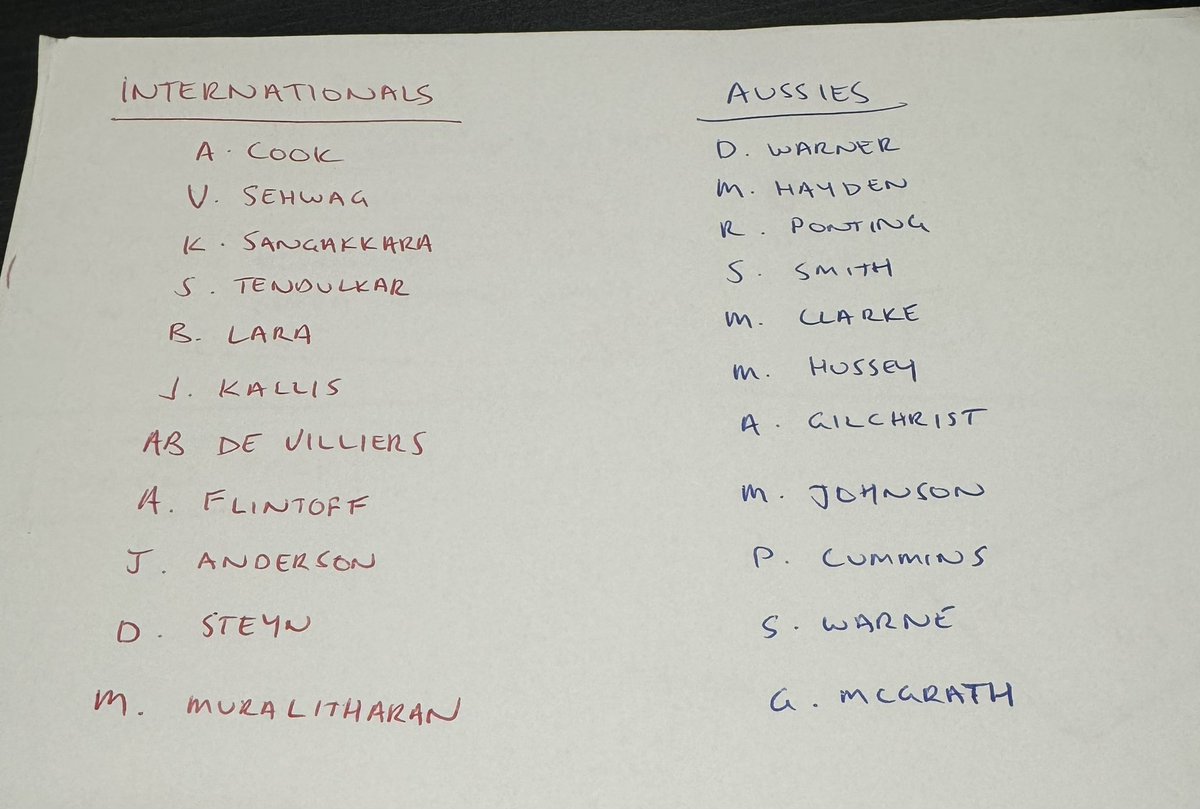 INTERNATIONALS
A. COOK
V. SEHWAG
K. SANGAKKARA
S. TENDULKAR
B. LARA
J. KALLIS
AB DE VILLIERS
A. FLINTOFF
J. ANDERSON
D. STEYN
M. MURALITHARAN
AUSSIES
D. WARNER
M. HAYDEN
R. PONTING
S. SMITH
M. CLARKE
M. HUSSEY
A. GILCHRIST
M. JOHNSON
P. CUMMINS
S. WARNE
G. MCGRATH